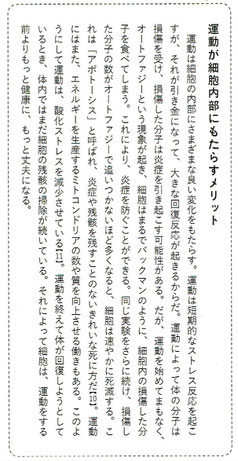 運動が細胞内部にもたらすメリット
運動は細胞の内部にさまざまな良い変化をもたらす。運動は短期的なストレス反応を起こ
すが、それが引き金になって、大きな回復反応が起きるからだ。運動によって体の分子は
損傷を受け、損傷した分子は炎症を引き起こす可能性がある。だが、運動を始めてまもなく、
オートファジーという現象が起き、細胞はまるでパックマンのように、細胞内の損傷した分
子を食べてしまう。これにより、炎症を防ぐことができる。同じ実験をさらに続け、損傷し
た分子の数がオートファジーで追いつかないほど多くなると、細胞は速やかに死滅する。こ
れは「アポトーシス」と呼ばれ、炎症や残骸を残すことのないきれいな死に方だ【10】。運動
にはまた、エネルギーを生産するミトコンドリアの数や質を向上させる働きもある。このよ
うにして運動は、酸化ストレスを減少させている【11】。運動を終えて体が回復しようとして
いるとき、体内ではまだ細胞の残骸の掃除が続いている。それによって細胞は、運動をする
前よりもっと健康に、もっと丈夫になる。